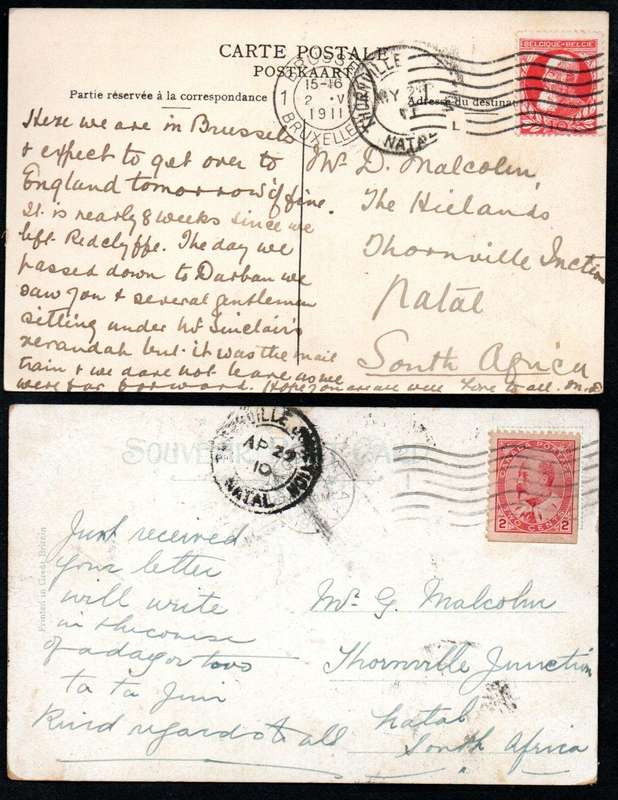 CARTE POSTALE
POSTKAART
Partie réservée à la correspondance
Adresse du destinat
BRUXELLES
15-16
1 2 V
1911
BRUXELLE
THORNVILLE
MY
11
NATAL
L
BELGIQUE-BELGIË
10
Here we are in Brussels
& expect to get over to
England tomorrow if fine.
It is nearly 8 weeks since we
left Redclyffe. The day we
passed down to Durban we
saw you & several gentlemen
sitting under Mr Sinclair's
verandah but it was the mail
train & we dare not leave as we
were far forward. Hope you are all well love to all. M.D
Mr D. Malcolm
The Hielands
Thornville Inction
Natal
South Africa
SOUVENIR POST CARD
THORNVILLE JUNCTION
AP 29
10
NATAL
CANADA POSTAGE
2 TWO CENTS 2
Printed in Great Britain
Just received
your letter
will write
in the course
of a day or two
ta ta Jim
Kind regards to all
Mr G. Malcolm
Thornville Junction
Natal
South Africa